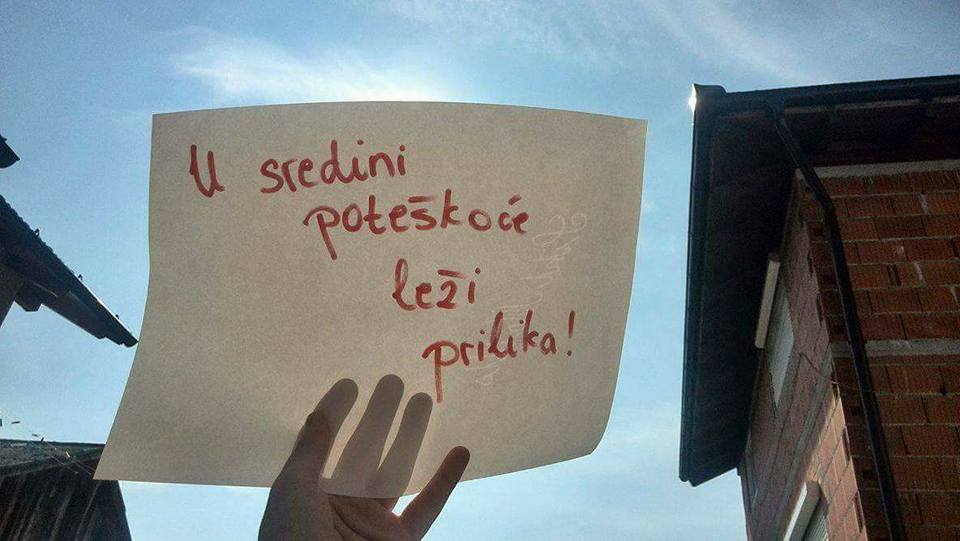 U sredini
poteškoće
leži
prilika!